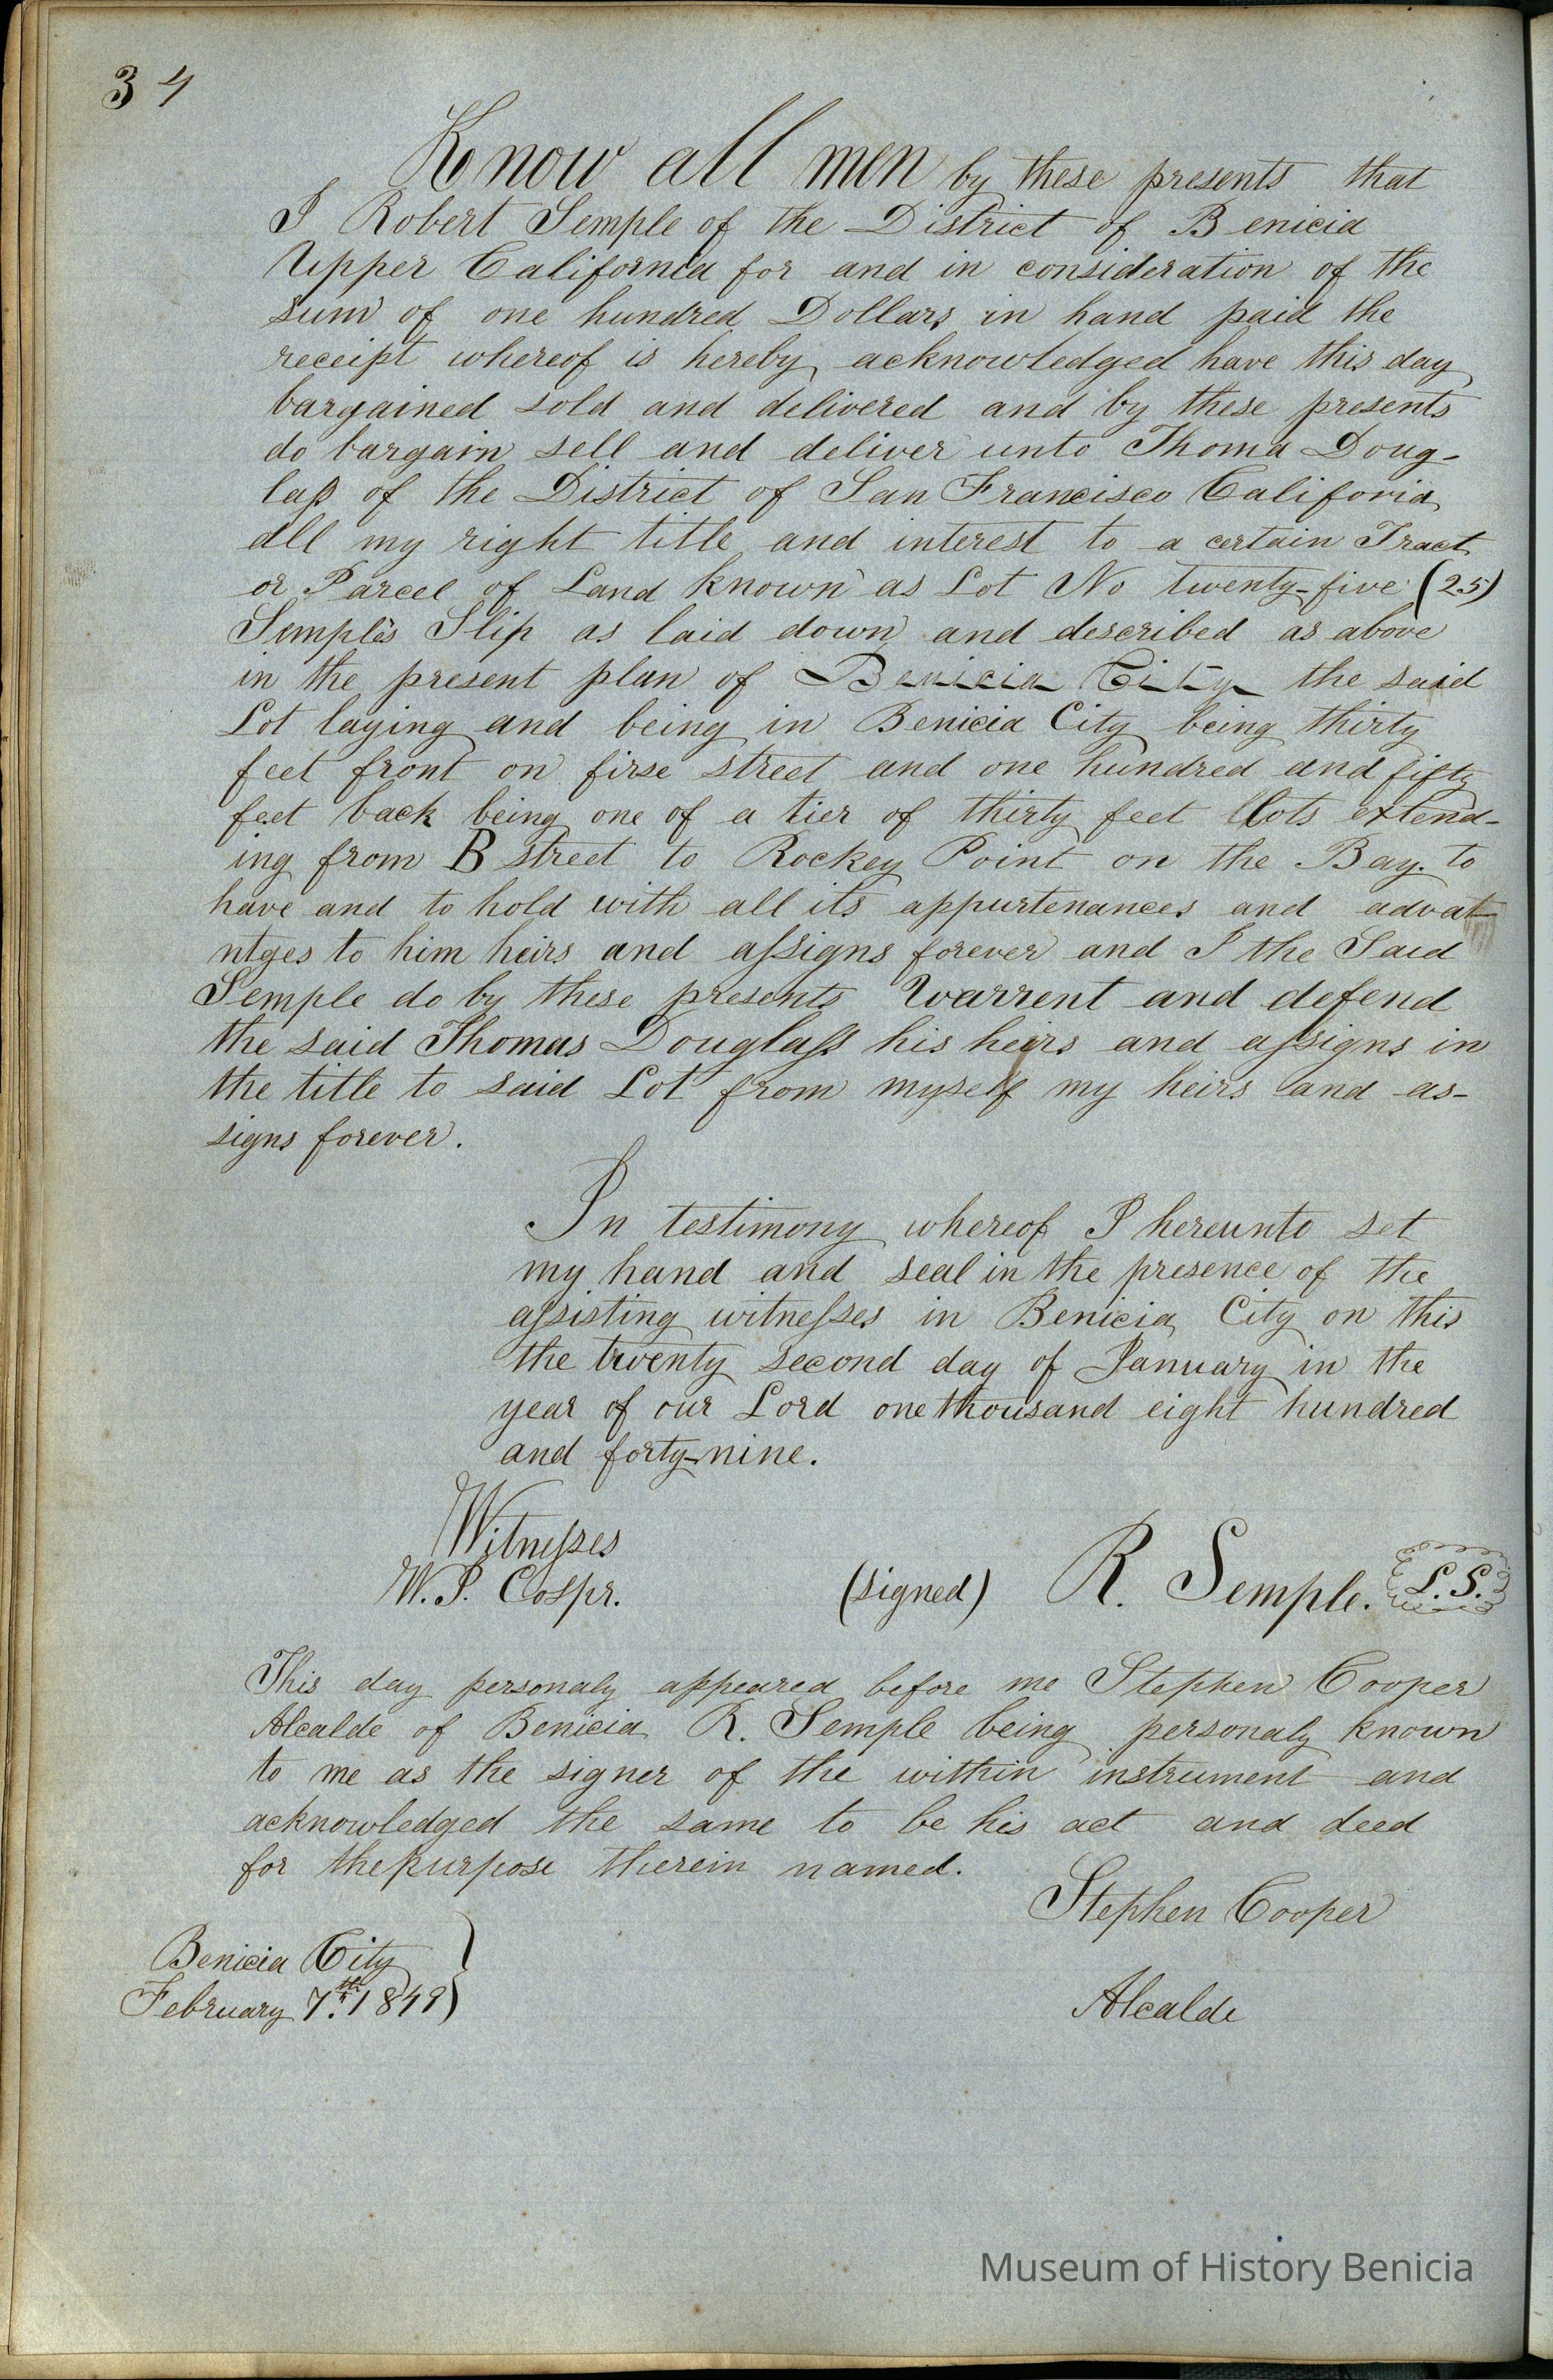 34
Know all men by these presents that
I Robert Semple of the District of Benicia
Upper California for and in consideration of the
sum of one hundred Dollars in hand paid the
receipt whereof is hereby acknowledged have this day
bargained sold and delivered and by these presents
do bargain sell and deliver unto Thoma Doug-
lass of the District of San Francisco Califoria
all my right title and interest to a certain Tract
or Parcel of Land known as Lot No twenty-five (25)
Semple's Slip as laid down and described as above
in the present plan of Benicia City the said
Lot laying and being in Benicia City being thirty
feet front on firse street and one hundred and fifty
feet back being one of a tier of thirty feet lots extend-
ing from B street to Rockey Point on the Bay. to
have and to hold with all its appurtenances and advat
ntges to him heirs and assigns forever and I the Said
Semple do by these presents Warrent and defend
the said Thomas Douglass his heirs and assigns in
the title to said Lot from myself my heirs and as-
signs forever.
In testimony whereof I hereunto set
my hand and seal in the presence of the
assisting witnesses in Benicia City on this
the twenty second day of January in the
year of our Lord one thousand eight hundred
and forty-nine.
Witnesses
W. P. Cospr.
(signed) R. Semple. L. S.
This day personaly appeared before me Stephen Cooper
Alcalde of Benicia R. Semple being personaly known
to me as the signer of the within instrument and
acknowledged the same to be his act and deed
for the purpose therein named.
Stephen Cooper
Benicia City
February 7th. 1849
Alcalde
Museum of History Benicia